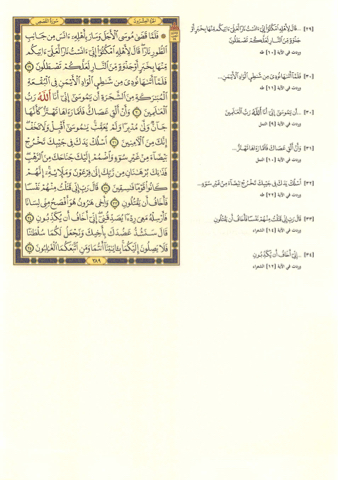 الجزء العشرون
سورة القصص
۞ فَلَمَّا قَضَىٰ مُوسَى ٱلْأَجَلَ وَسَارَ بِأَهْلِهِۦٓ ءَانَسَ مِن جَانِبِ
ٱلطُّورِ نَارًا قَالَ لِأَهْلِهِ ٱمْكُثُوٓا۟ إِنِّىٓ ءَانَسْتُ نَارًا لَّعَلِّىٓ ءَاتِيكُم
مِّنْهَا بِخَبَرٍ أَوْ جَذْوَةٍ مِّنَ ٱلنَّارِ لَعَلَّكُمْ تَصْطَلُونَ ٢٩
فَلَمَّآ أَتَىٰهَا نُودِىَ مِن شَٰطِئِ ٱلْوَادِ ٱلْأَيْمَنِ فِى ٱلْبُقْعَةِ
ٱلْمُبَٰرَكَةِ مِنَ ٱلشَّجَرَةِ أَن يَٰمُوسَىٰٓ إِنِّىٓ أَنَا ٱللَّهُ رَبُّ
ٱلْعَٰلَمِينَ ٣٠ وَأَنْ أَلْقِ عَصَاكَ فَلَمَّا رَءَاهَا تَهْتَزُّ كَأَنَّهَا
جَآنٌّ وَلَّىٰ مُدْبِرًا وَلَمْ يُعَقِّبْ يَٰمُوسَىٰٓ أَقْبِلْ وَلَا تَخَفْ
إِنَّكَ مِنَ ٱلْءَامِنِينَ ٣١ ٱسْلُكْ يَدَكَ فِى جَيْبِكَ تَخْرُجْ
بَيْضَآءَ مِنْ غَيْرِ سُوٓءٍ وَٱضْمُمْ إِلَيْكَ جَنَاحَكَ مِنَ ٱلرَّهْبِ
فَذَٰنِكَ بُرْهَٰنَانِ مِن رَّبِّكَ إِلَىٰ فِرْعَوْنَ وَمَلَإِي۟هِۦٓ إِنَّهُمْ
كَانُوا۟ قَوْمًا فَٰسِقِينَ ٣٢ قَالَ رَبِّ إِنِّى قَتَلْتُ مِنْهُمْ نَفْسًا
فَأَخَافُ أَن يَقْتُلُونِ ٣٣ وَأَخِى هَٰرُونُ هُوَ أَفْصَحُ مِنِّى لِسَانًا
فَأَرْسِلْهُ مَعِىَ رِدْءًا يُصَدِّقُنِىٓ إِنِّىٓ أَخَافُ أَن يُكَذِّبُونِ ٣٤
قَالَ سَنَشُدُّ عَضُدَكَ بِأَخِيكَ وَنَجْعَلُ لَكُمَا سُلْطَٰنًا
فَلَا يَصِلُونَ إِلَيْكُمَا بِـَٔايَٰتِنَآ أَنتُمَا وَمَنِ ٱتَّبَعَكُمَا ٱلْغَٰلِبُونَ ٣٥
٣٨٩
[٢٩] ... قَالَ لِأَهْلِهِ ٱمْكُثُوٓا۟ إِنِّىٓ ءَانَسْتُ نَارًا لَّعَلِّىٓ ءَاتِيكُم مِّنْهَا بِخَبَرٍ أَوْ
جَذْوَةٍ مِّنَ ٱلنَّارِ لَعَلَّكُمْ تَصْطَلُونَ
وردت في الآية [١٠] طه
[٣٠] فَلَمَّآ أَتَىٰهَا نُودِىَ مِن شَٰطِئِ ٱلْوَادِ ٱلْأَيْمَنِ...
وردت في الآية [١١] طه
[٣٠] ... أَن يَٰمُوسَىٰٓ إِنِّىٓ أَنَا ٱللَّهُ رَبُّ ٱلْعَٰلَمِينَ
وردت في الآية [٩] النمل
[٣١] وَأَنْ أَلْقِ عَصَاكَ فَلَمَّا رَءَاهَا تَهْتَزُّ...
وردت في الآية [١٠] النمل
[٣٢] ٱسْلُكْ يَدَكَ فِى جَيْبِكَ تَخْرُجْ بَيْضَآءَ مِنْ غَيْرِ سُوٓءٍ...
وردت في الآية [٢٢] طه
[٣٣] قَالَ رَبِّ إِنِّى قَتَلْتُ مِنْهُمْ نَفْسًا فَأَخَافُ أَن يَقْتُلُونِ
وردت في الآية [١٤] الشعراء
[٣٤] ... إِنِّىٓ أَخَافُ أَن يُكَذِّبُونِ
وردت في الآية [١٢] الشعراء